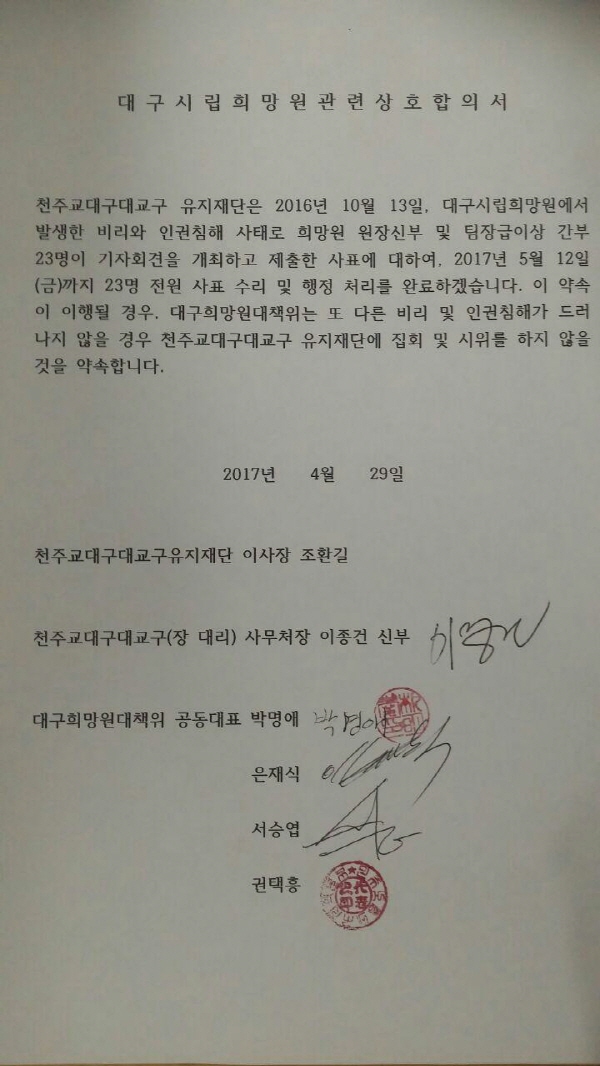 대구시립희망원관련상호합의서
천주교대구대교구 유지재단은 2016년 10월 13일, 대구시립희망원에서
발생한 비리와 인권침해 사태로 희망원 원장신부 및 팀장급이상 간부
23명이 기자회견을 개최하고 제출한 사표에 대하여, 2017년 5월 12일
(금)까지 23명 전원 사표 수리 및 행정 처리를 완료하겠습니다. 이 약속
이 이행될 경우, 대구희망원대책위는 또 다른 비리 및 인권침해가 드러
나지 않을 경우 천주교대구대교구 유지재단에 집회 및 시위를 하지 않을
것을 약속합니다.
2017년 4월 29일
천주교대구대교구유지재단 이사장 조환길
천주교대구대교구(장 대리) 사무처장 이종건 신부
대구희망원대책위 공동대표 박명애 박명애
은재식
서승엽
권택흥